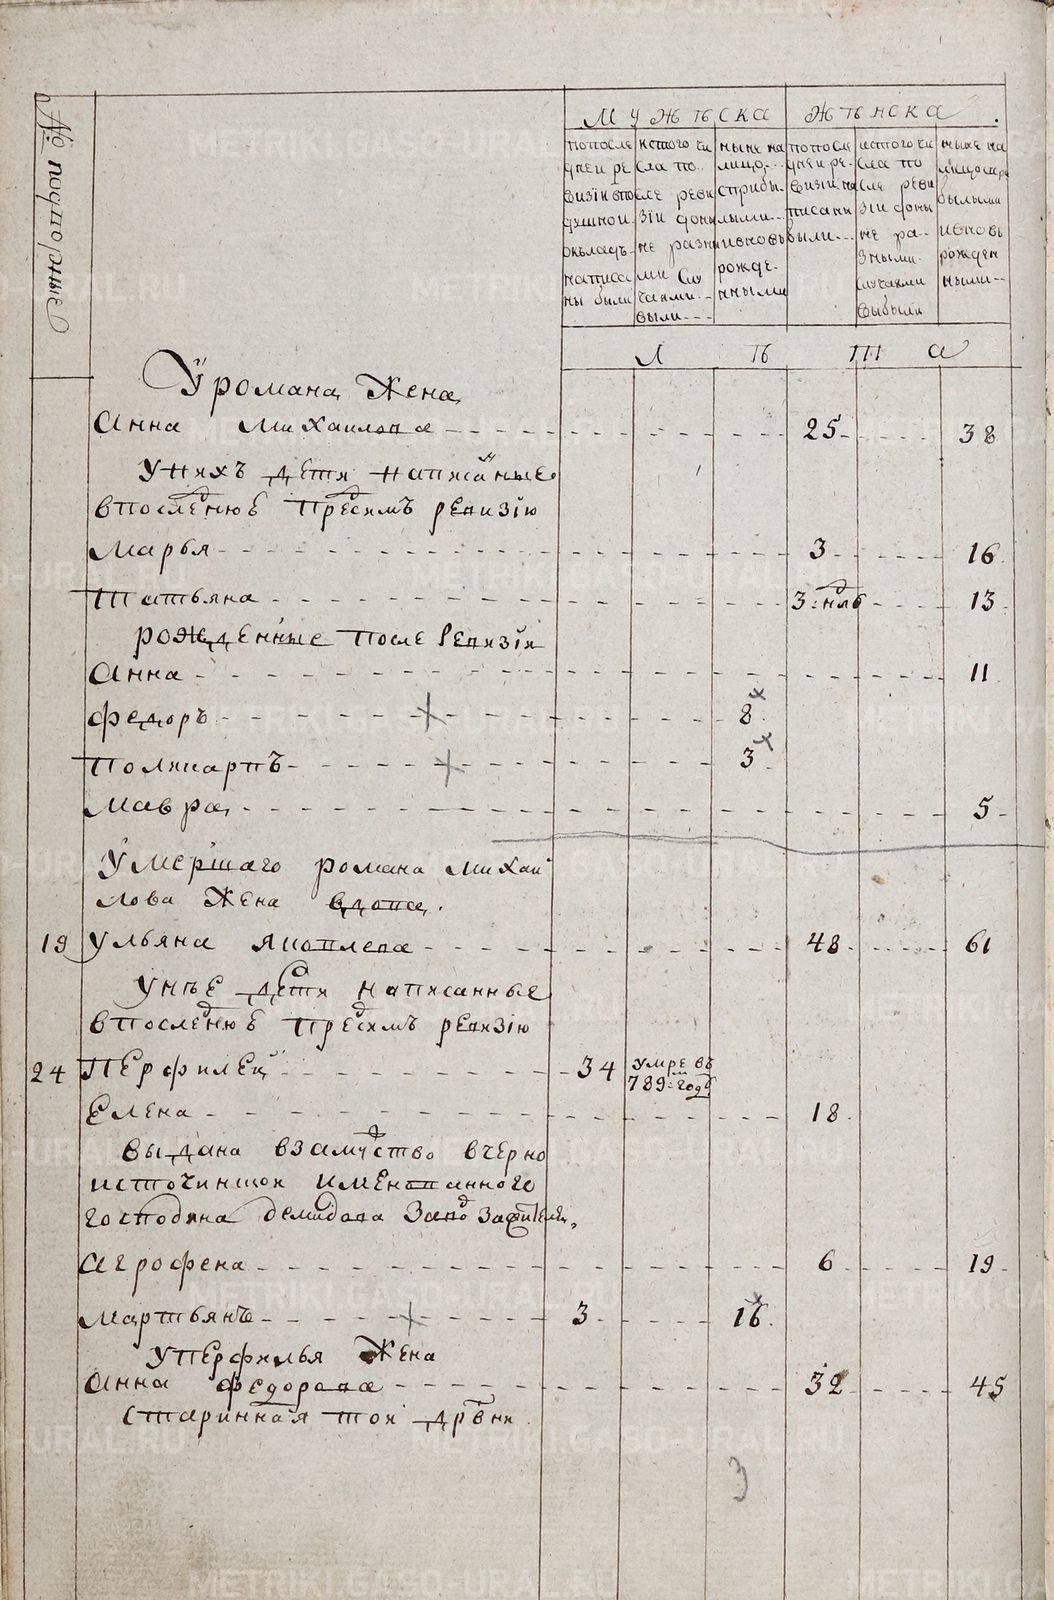 № подворные
мужеска
женска
попосле
дней ре
визии в по
душной
окладъ
написа
ны были
истого чи
сла по
сле реви
зии доны
не разны
ми слу
чаями
выбыли
ныне на
лицо
сприбы
лыми
ивновь
рожде
нными
попосле
дней ре
визии на
писаны
были
истого чи
сла по
сле реви
зии доны
не ра
зными
случаями
выбыли
ныне на
лицо спри
былыми
ивновь
рожден
ными
лѣта
У романа жена
Анна Михаилова 25 38
Унихъ дети написанные
впоследнюю предсимъ ревизию
Марья 3 16
Татьяна 3 нед 13
рожденные после ревизии
Анна 11
Федоръ 8
Поликарпъ 3
Мавра 5
Умершаго романа Михаи
лова жена вдова
19 Ульяна Яковлева 48 61
Унее дети написанные
впоследнюю предсимъ ревизию
24 Перфилей 34 умре въ
789 годе
Елена 18
выдана взамужство вчерно
источинской именованного
господина демидова завод
Агрофена 6 19
Мартьянъ 3 16
У Перфилья жена
Анна Федорова 32 45
старинная той дрвни
3